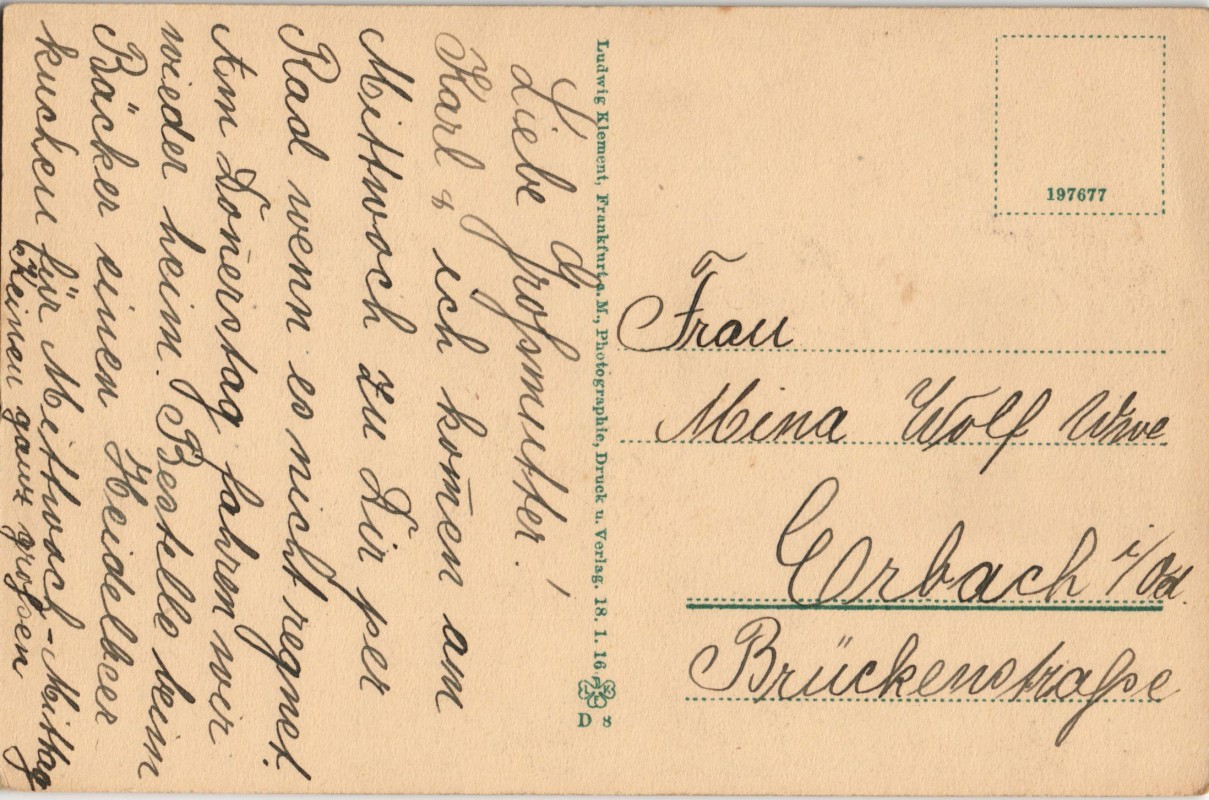 Liebe Großmutter!
Karl & ich kom̄en am
Mittwoch zu Dir per
Rad wenn es nicht regnet.
Am Don̄erstag fahren wir
wieder heim. Bestelle beim
Bäcker einen Heidelbeer
kuchen für Mittwoch-Mittag
Keinen ganz großen
Ludwig Klement, Frankfurt a. M., Photographie, Druck u. Verlag. 18. 1. 16
L K
D 8
197677
Frau
Mina Wolf Wwe
Erbach i/Od.
Brückenstraße